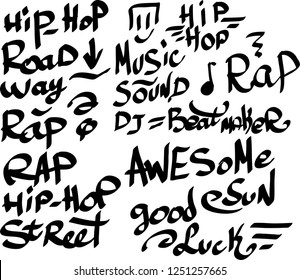 Hip-Hop
Road
way
Rap
RAP
Hip-Hop
Street
Hip
Hop
Music
Sound
Rap
DJ = Beatmaker
Awesome
good Sun
Luck
shutterstock.com · 1251257665